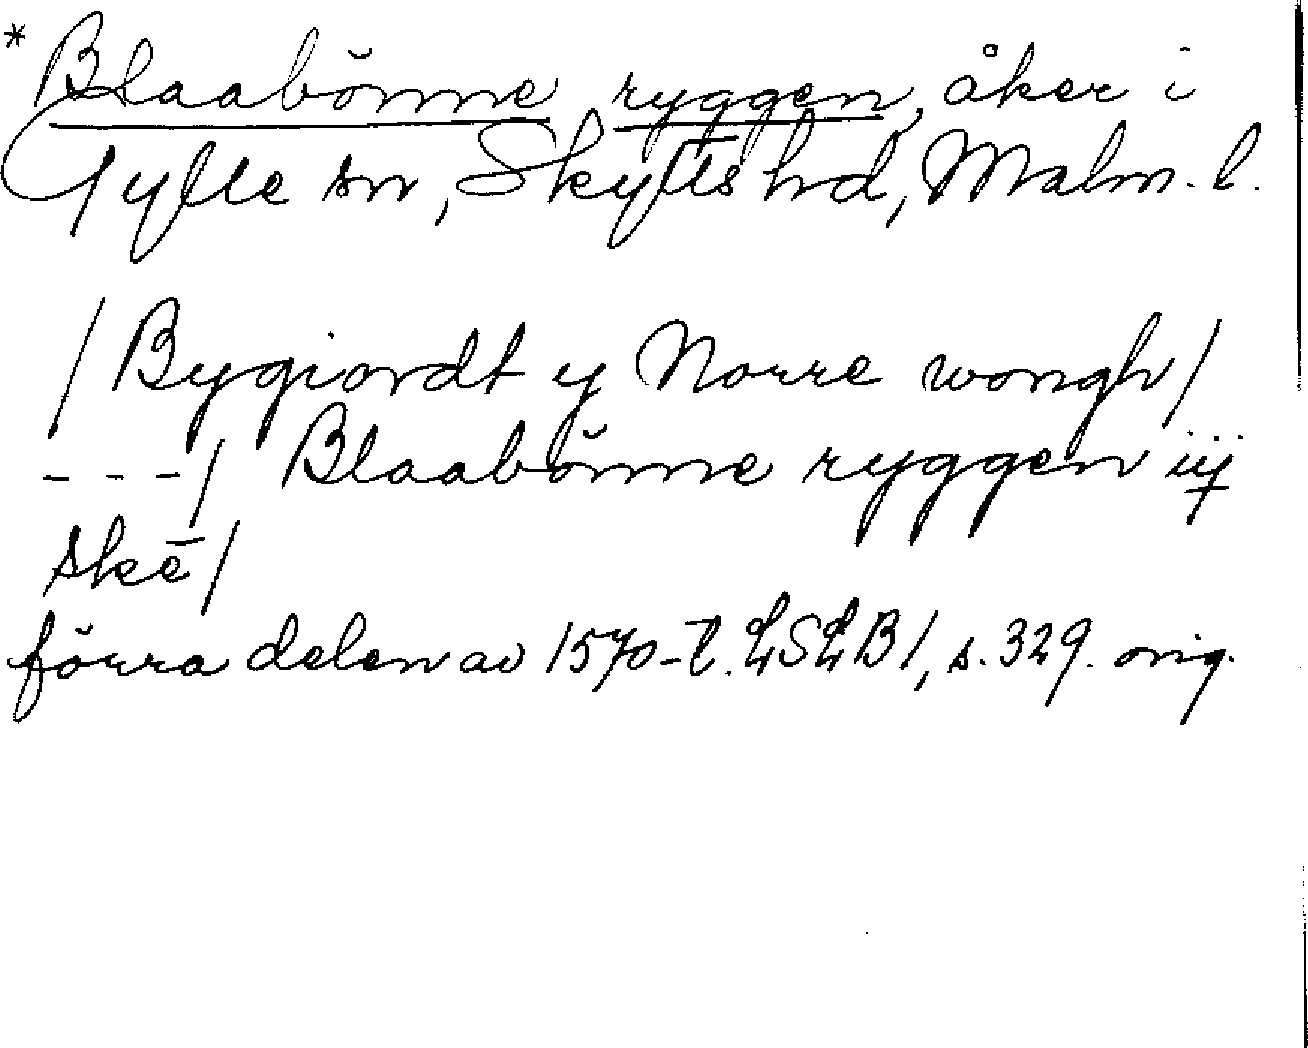 * Blaabönne ryggen, åker i
Gylle sn, Skytts hd, Malm. l.
/ Bygiordt y Norre wongh /
- - - / Blaabönne ryggen iij
skē /
förra delen av 1570-t. LSLB 1, s. 329. orig.